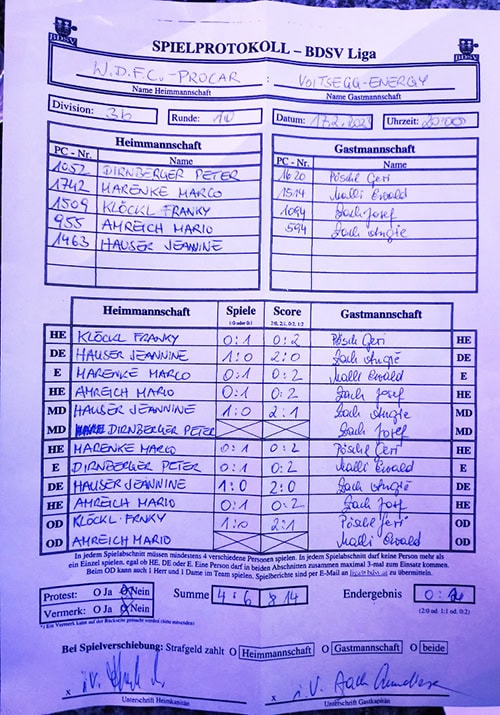 SPIELPROTOKOLL – BDSV Liga
W.D.F.C.-PROCAR : VOITSEGG-ENERGY
Name Heimmannschaft Name Gastmannschaft
Division: 3b Runde: 10 Datum: Uhrzeit: 20:00
Heimmannschaft Gastmannschaft
PC - Nr. Name PC - Nr. Name
1052 DIRNBERGER PETER 1620 Pöschl Geri
1742 MARENKE MARCO 1514 Malli Ewald
1509 KLÖCKL FRANKY 1094 Zach Josef
955 AMREICH MARIO 594 Zach Angie
1463 HAUSER JEANINE
Heimmannschaft Spiele Score Gastmannschaft
1:0 oder 0:1 2:0, 2:1, 0:2, 1:2
HE KLÖCKL FRANKY 0:1 0:2 Pöschl Geri HE
DE HAUSER JEANNINE 1:0 2:0 Zach Angie DE
E MARENKE MARCO 0:1 0:2 Malli Ewald E
HE AMREICH MARIO 0:1 0:2 Zach Josef HE
MD HAUSER JEANNINE 1:0 2:1 Zach Angie MD
MD DIRNBERGER PETER Zach Josef MD
HE MARENKE MARCO 0:1 0:2 Pöschl Geri HE
E DIRNBERGER PETER 0:1 0:2 Malli Ewald E
DE HAUSER JEANNINE 1:0 2:0 Zach Angie DE
HE AMREICH MARIO 0:1 0:2 Zach Josef HE
OD KLÖCKL FRNKY 1:0 2:1 Pöschl Geri OD
OD AMREICH MARIO Malli Ewald OD
In jedem Spielabschnitt müssen mindestens 4 verschiedene Personen spielen. In jedem Spielabschnitt darf keine Person mehr als
ein Einzel spielen, egal ob HE, DE oder E. Eine Person darf in beiden Abschnitten zusammen maximal 3-mal zum Einsatz kommen.
Beim OD kann auch 1 Herr und 1 Dame im Team spielen. Spielberichte sind per E-Mail an zu übermitteln.
Protest: O Ja O Nein Summe 4:6 8:14 Endergebnis 0:2
Vermerk: O Ja O Nein (2:0 od. 1:1 od. 0:2)
*) Ein Vermerk kann auf der Rückseite gemacht werden (bitte mitsenden)
Bei Spielverschiebung: Strafgeld zahlt O Heimmannschaft O Gastmannschaft O beide
x i.V. x i.V. Zach
Unterschrift Heimkapitän Unterschrift Gastkapitän